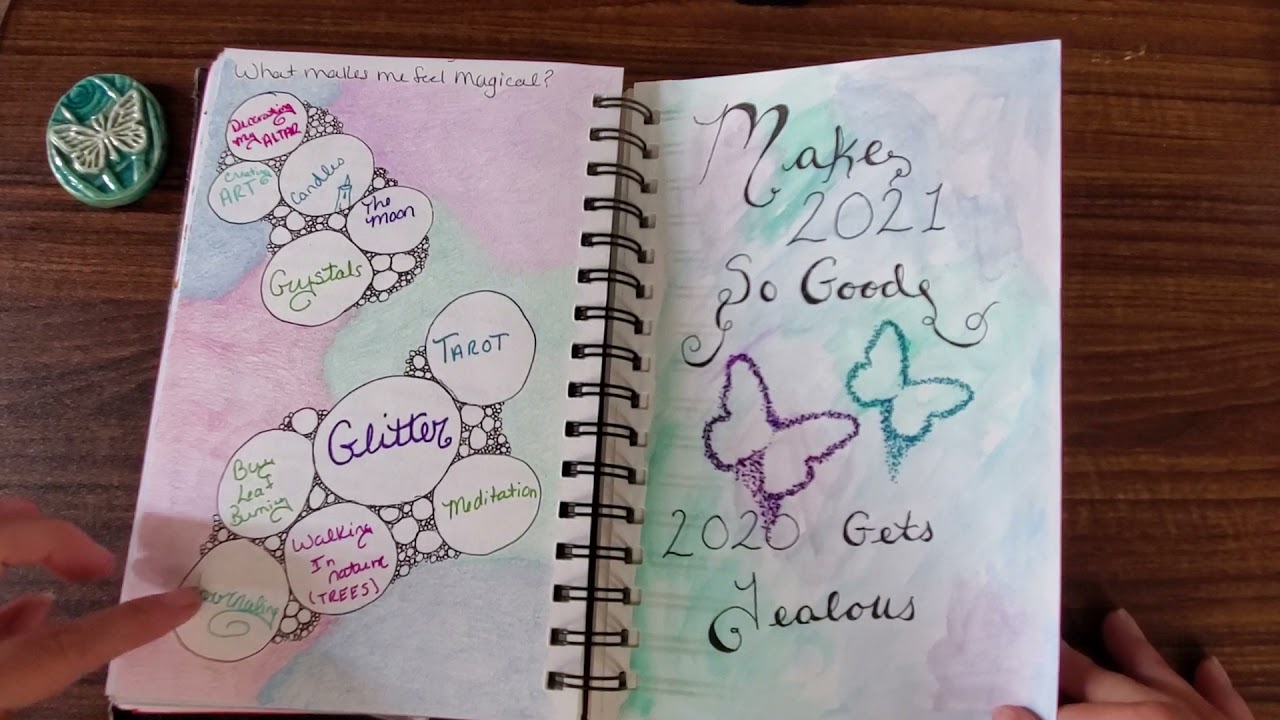 What makes me feel magical?
Decorating
my ALTAR
Creating
ART
Candles
The
moon
Crystals
TAROT
Glitter
Bay
Leaf
Burning
Meditation
Walking
In
nature
(TREES)
Journaling
Make
2021
So Good
2020 Gets
Jealous